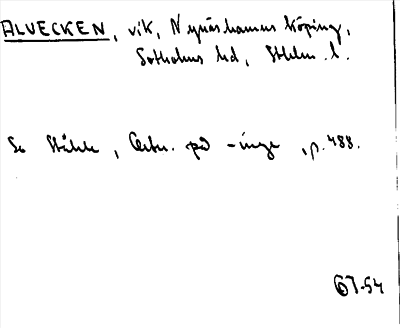 ALVECKEN, vik, Nynäshamns köping,
Sotholms hd, Sthlm. l.
Se Ståhle, Ortn. på -inge, p. 488.